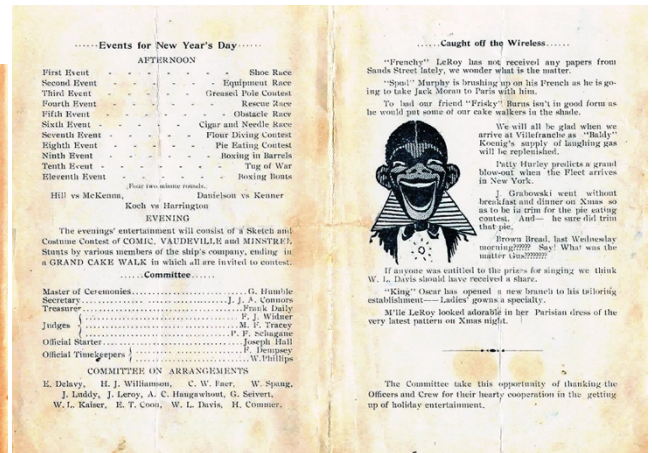 ......Events for New Year's Day......
AFTERNOON
First Event - - - - - - Shoe Race
Second Event - - - - - Equipment Race
Third Event - - - - Greased Pole Contest
Fourth Event - - - - - Rescue Race
Fifth Event - - - - - Obstacle Race
Sixth Event - - - Cigar and Needle Race
Seventh Event - - - Flour Diving Contest
Eighth Event - - - - Pie Eating Contest
Ninth Event - - - - Boxing in Barrels
Tenth Event - - - - - Tug of War
Eleventh Event - - - - Boxing Bouts
Four two minute rounds.
Hill vs McKenna, Danielson vs Kenner
Koch vs Harrington
EVENING
The evenings' entertainment will consist of a Sketch and
Costume Contest of COMIC, VAUDEVILLE and MINSTREL
Stunts by various members of the ship's company, ending in
a GRAND CAKE WALK in which all are invited to contest.
......Committee......
Master of Ceremonies..............................G. Humble
Secretary..............................J. J. A. Connors
Treasurer..............................Frank Daily
Judges { ..............................F. J. Widner
..............................M. F. Tracey
..............................P. F. Schagane
Official Starter..............................Joseph Hall
Official Timekeepers { ....................F. Dempsey
....................W. Phillips
COMMITTEE ON ARRANGEMENTS
E. Delavy, H. J. Williamson, C. W. Faer, W. Spang,
J. Luddy, J. Leroy, A. C. Haugawhont, G. Seivert,
W. L. Kaiser, E. T. Coon, W. L. Davis, H. Commer,
......Caught off the Wireless......
"Frenchy" LeRoy has not received any papers from
Sands Street lately, we wonder what is the matter.
"Spud" Murphy is brushing up on his French as he is go-
ing to take Jack Moran to Paris with him.
To bad our friend "Frisky" Burns isn't in good form as
he would put some of our cake walkers in the shade.
We will all be glad when we
arrive at Villefranche as "Baldy"
Koenig's supply of laughing gas
will be replenished.
Patty Hurley predicts a grand
blow-out when the Fleet arrives
in New York.
J. Grabowski went without
breakfast and dinner on Xmas so
as to be in trim for the pie eating
contest. And— he sure did trim
that pie.
Brown Bread, last Wednesday
morning?????? Say! What was the
matter Gus????????
If anyone was entitled to the prizes for singing we think
W. L. Davis should have received a share.
"King" Oscar has opened a new branch to his tailoring
establishment—— Ladies' gowns a specialty.
M'lle LeRoy looked adorable in her Parisian dress of the
very latest pattern on Xmas night.
The Committee take this opportunity of thanking the
Officers and Crew for their hearty cooperation in the getting
up of holiday entertainment.